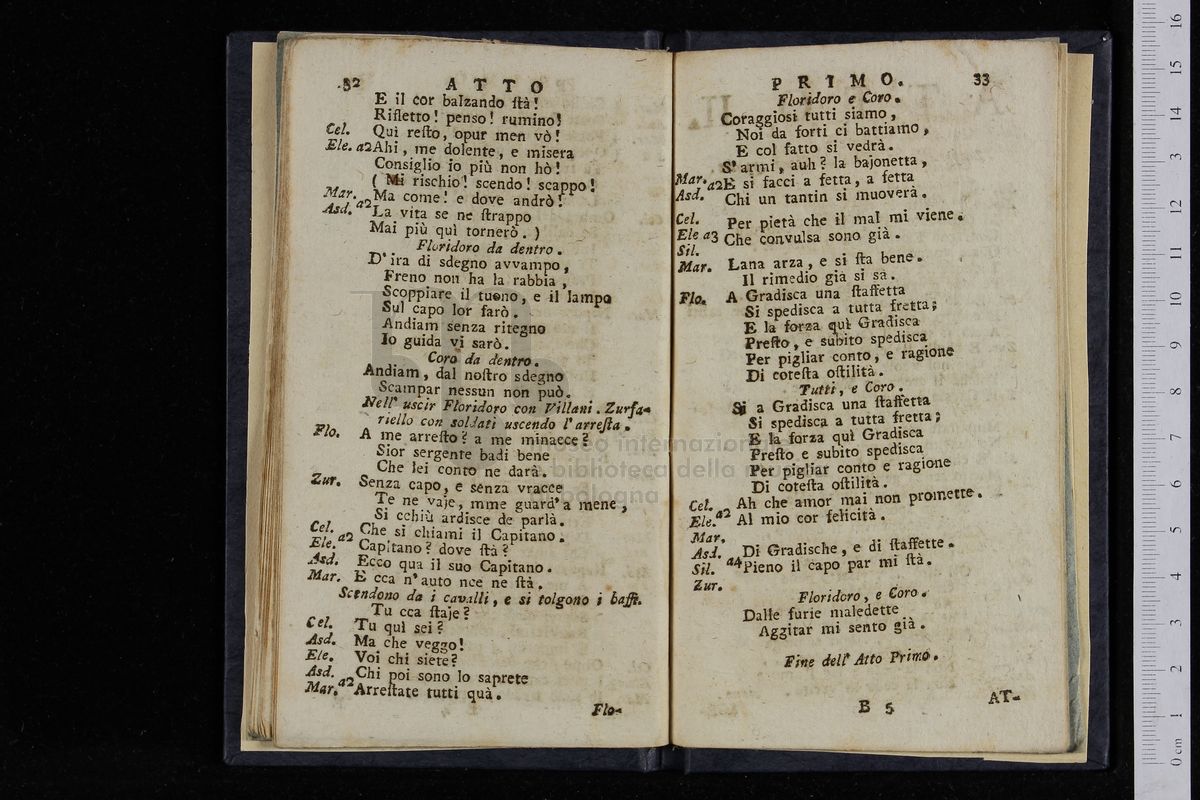 32 ATTO
E il cor balzando ſtà!
Rifletto! penso! rumino!
Cel. Quì reſto, opur men vò!
Ele. a2 Ahi, me dolente, e misera
Consiglio io più non hò!
( Mi rischio! scendo! scappo!
Mar. Ma come! e dove andrò!
Asd. a2 La vita se ne ſtrappo
Mai più quì tornerò. )
Floridoro da dentro.
D'ira di sdegno avvampo,
Freno non ha la rabbia,
Scoppiare il tuono, e il lampo
Sul capo lor farò.
Andiam senza ritegno
Io guida vi sarò.
Coro da dentro.
Andiam, dal noſtro sdegno
Scampar nessun non può.
Nell' uscir Floridoro con Villani. Zurfa-
riello con soldati uscendo l'arreſta.
Flo. A me arreſto? a me minacce?
Sior sergente badi bene
Che lei conto ne darà.
Zur. Senza capo, e senza vracce
Te ne vaje, mme guard'a mene,
Si cchiù ardisce de parlà.
Cel. Che si chiami il Capitano.
Ele. a2 Capitano? dove ſtà?
Asd. Ecco qua il suo Capitano.
Mar. E cca n'auto nce ne ſtà.
Scendono da i cavalli, e si tolgono i baffi.
Tu cca ſtaje?
Cel. Tu quì sei?
Asd. Ma che veggo!
Ele. Voi chi siete?
Asd. Chi poi sono lo saprete
Mar. a2 Arreſtate tutti quà.
Flo-
PRIMO. 33
Floridoro e Coro.
Coraggiosi tutti siamo,
Noi da forti ci battiamo,
E col fatto si vedrà.
S'armi, auh? la bajonetta,
Mar. a2 E si facci a fetta, a fetta
Asd. Chi un tantin si muoverà.
Cel. Per pietà che il mal mi viene.
Ele a3 Che convulsa sono già.
Sil.
Mar. Lana arza, e si ſta bene.
Il rimedio già si sà.
Flo. A Gradisca una ſtaffetta
Si spedisca a tutta fretta;
E la forza quì Gradisca
Preſto, e subito spedisca
Per pigliar conto, e ragione
Di coteſta oſtilità.
Tutti, e Coro.
Sì a Gradisca una ſtaffetta
Si spedisca a tutta fretta;
E la forza quì Gradisca
Preſto e subito spedisca
Per pigliar conto e ragione
Di coteſta oſtilità.
Cel. Ah che amor mai non promette.
Ele. a2 Al mio cor felicità.
Mar.
Asd. Di Gradische, e di ſtaffette.
Sil. a4 Pieno il capo par mi ſtà.
Zur.
Floridoro, e Coro.
Dalle furie maledette
Aggitar mi sento già.
Fine dell' Atto Primo.
B 5 AT-
museo internazionale
biblioteca della
bologna
0 cm 1 2 3 4 5 6 7 8 9 10 11 12 13 14 15 16